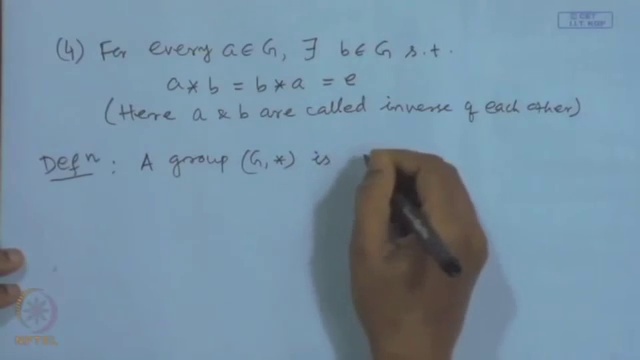 © CET
I.I.T. KGP
(4) For every a ∈ G, ∃ b ∈ G s.t.
a * b = b * a = e
(Here a & b are called inverse of each other)
Defⁿ : A group (G, *) is
NPTEL